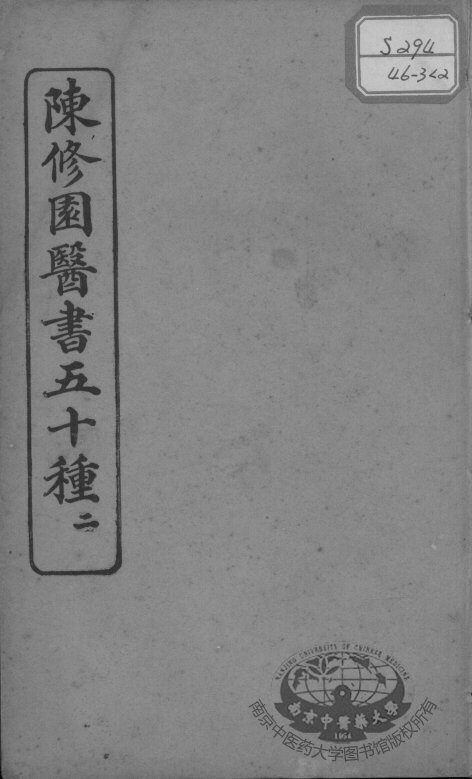 S294
46-3<2
陳修園醫書五十種 二
NANJING UNIVERSITY OF CHINESE MEDICINE
南京中醫藥大學
1954
南京中医药大学图书馆版权所有